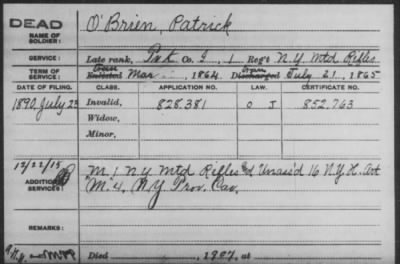 DEAD
NAME OF SOLDIER: O'Brien, Patrick
SERVICE: Late rank, Pvt Co. I, 1 Reg't N.Y. Mtd Rifles
TERM OF SERVICE: Enlisted Mar , 1864 Discharged July 21, 1865
DATE OF FILING. CLASS. APPLICATION NO. LAW. CERTIFICATE NO.
1890, July 23 Invalid, 828.381 O J 852.763
Widow,
Minor,
12/22/15
ADDITIONAL SERVICES: "M" 1 N.Y. Mtd Rifles Unass'd 16 N.Y. H. Art
"M" 4, N.Y. Prov. Cav.
REMARKS:
Died , 1907, at